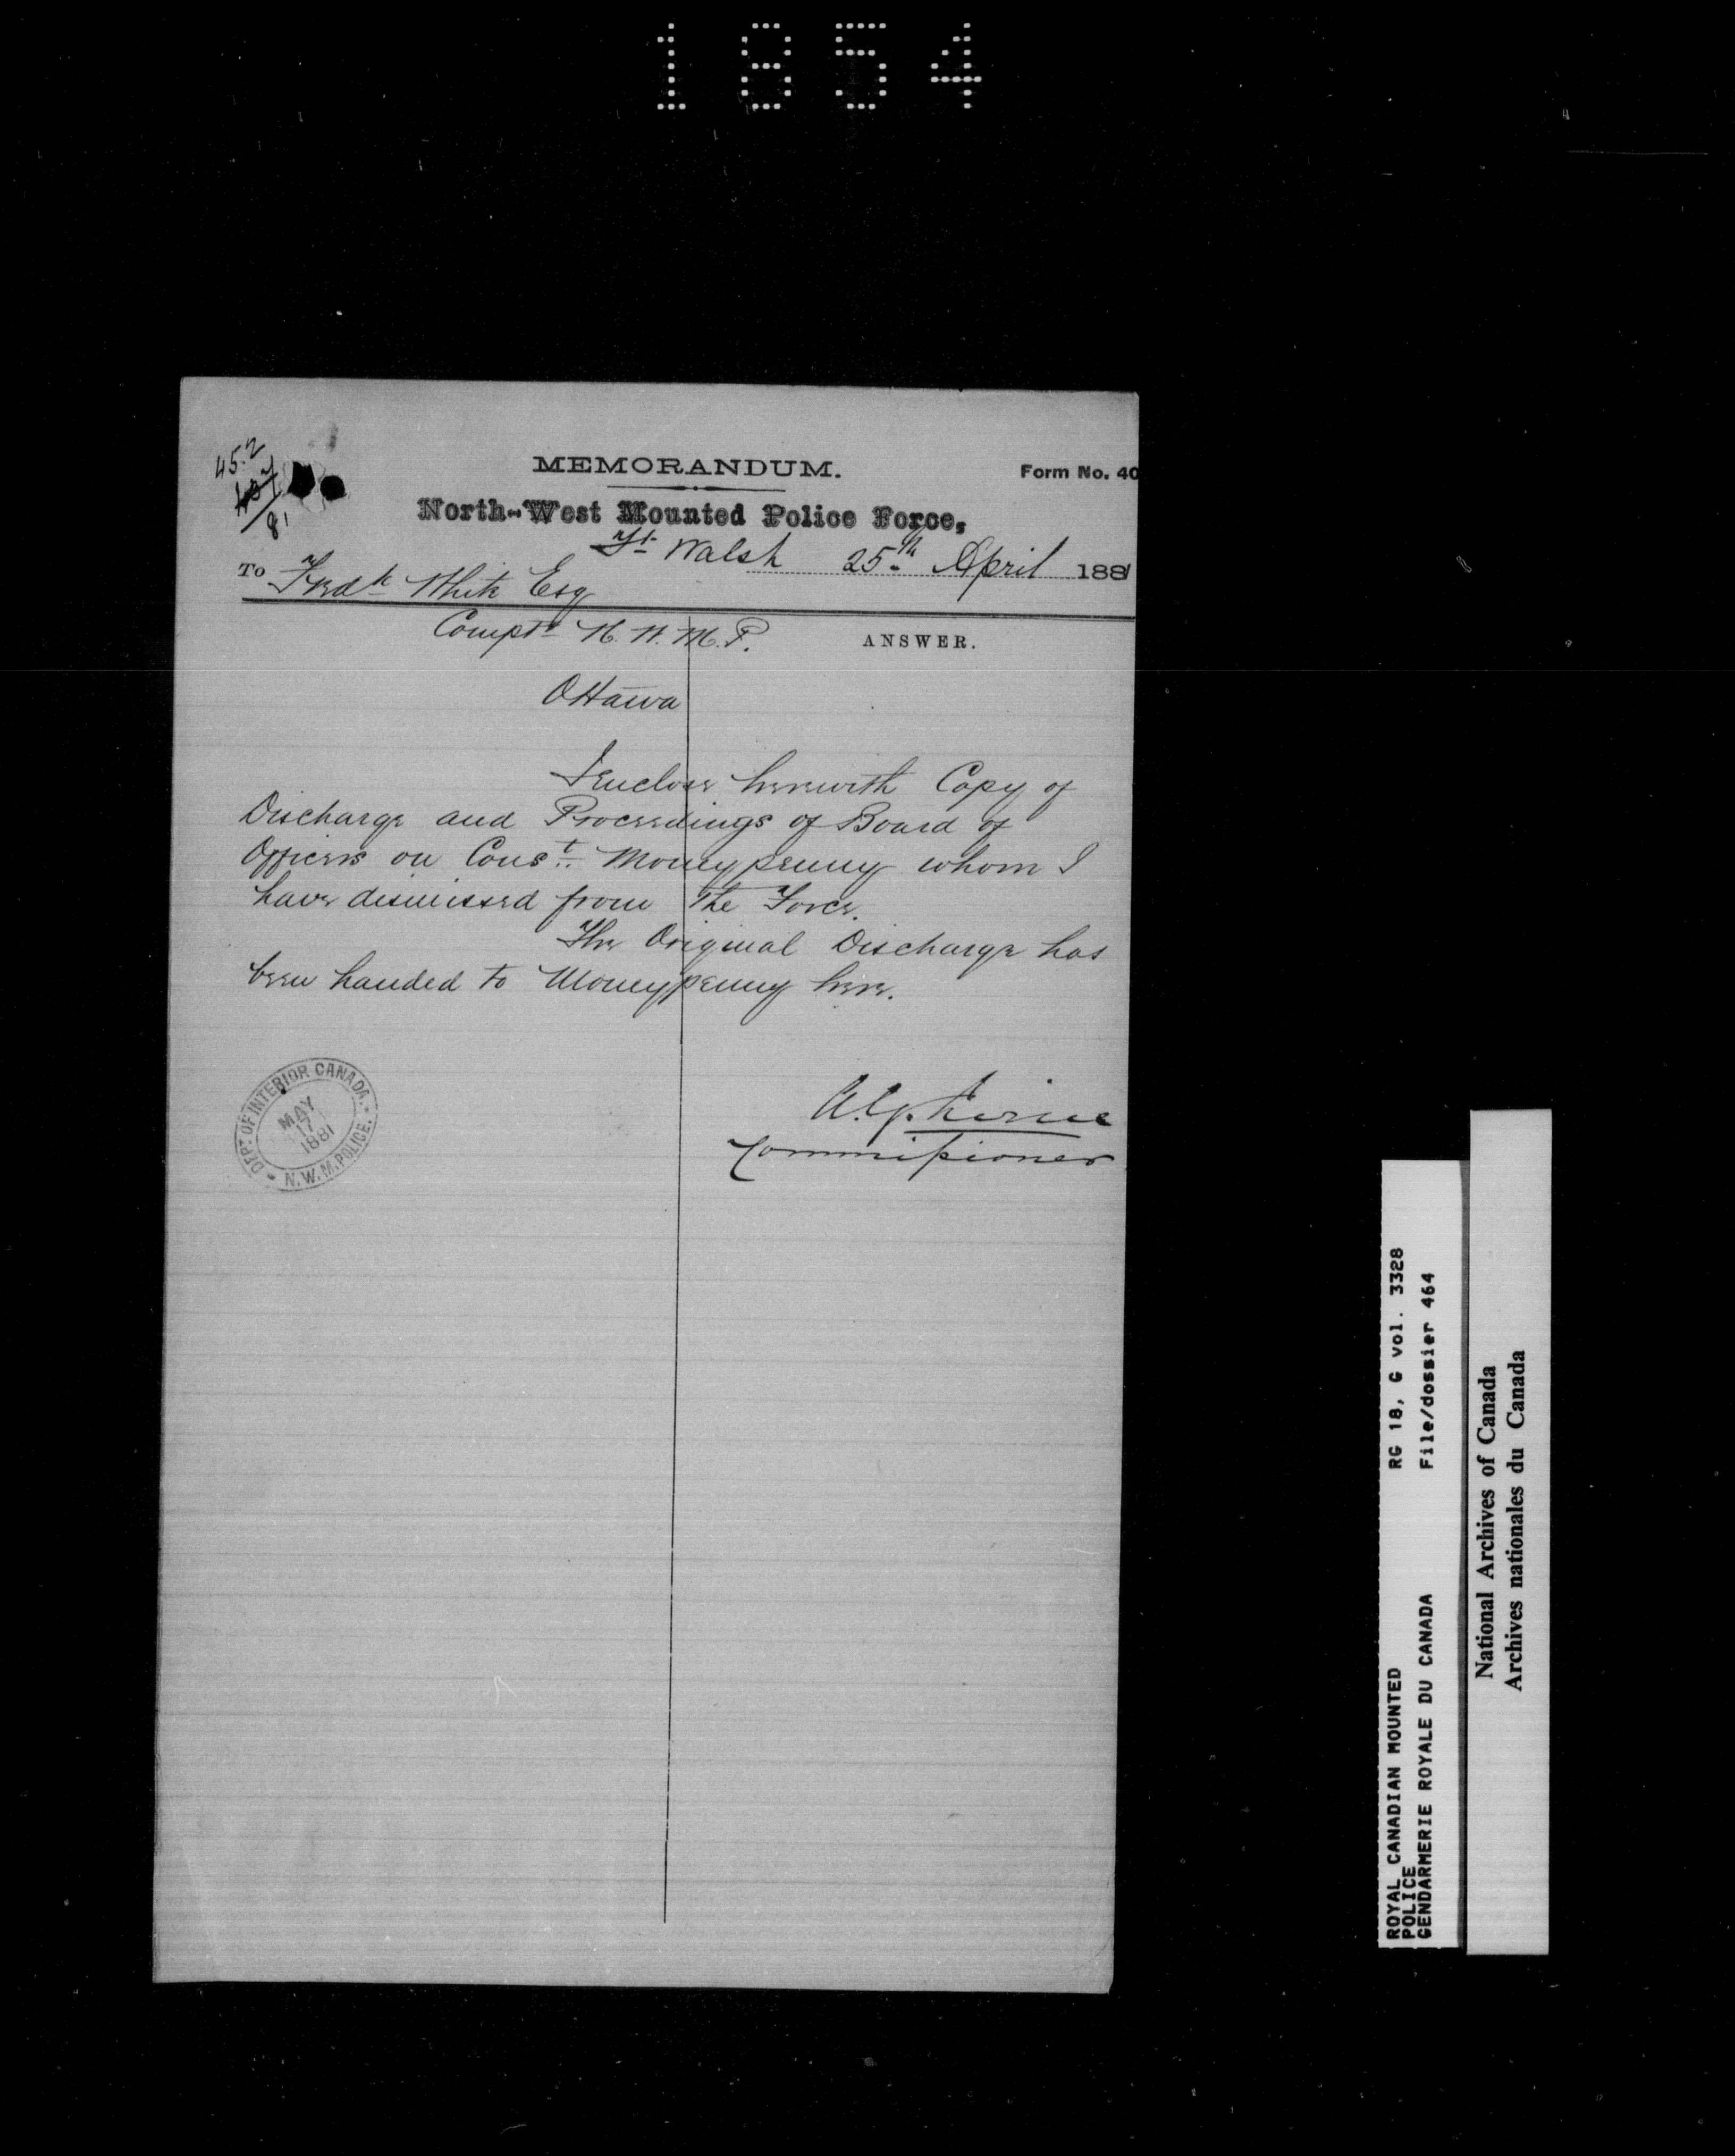 1854
45.2
81
MEMORANDUM.
Form No. 40
North-West Mounted Police Force,
Ft. Walsh 25th April 1881
To Fredk White Esq
Comptr N. W. M. P.
ANSWER.
Ottawa
I Enclose herewith Copy of
Discharge and Proceedings of Board of
Officers on Const. Moneypenny whom I
have dismissed from the Force.
The Original Discharge has
been handed to Moneypenny here.
A.G. Irvine
Commissioner
DEPT. OF INTERIOR CANADA.
MAY
17
1881
N.W.M.POLICE.
ROYAL CANADIAN MOUNTED
POLICE
GENDARMERIE ROYALE DU CANADA
RG 18, G vol. 3328
File/dossier 464
National Archives of Canada
Archives nationales du Canada